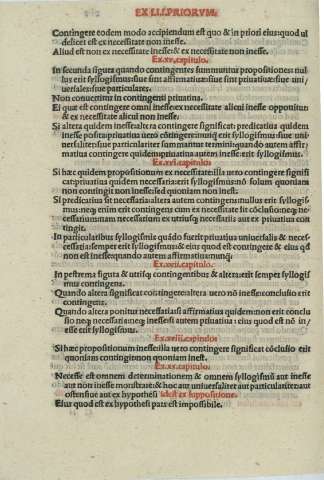 EX LI.I.PRIORVM.
Contingere eodem modo accipiendum est quo & in priori eius:quod ui
delicet est ex necessitate non inesse.
Aliud est non ex necessitate inesse:& ex necessitate non inesse.
Ex.xv.capitulo.
In secunda figura quando contingentes summuntur propositiones: nul
lus erit syllogismus:siue sint affirmatiuæ:siue sint priuatiuæ:siue uni
uersales:siue particulares.
Non conuertitur in contingenti priuatiua.
Ei quod est contingere omni inesse:ex necessitate alicui inesse opponitur:
& ex necessitate alicui non inesse.
Si altera quidem inesse:altera contingere significet: prædicatiua quidem
inesse posita:priuatiua uero contingere:nunquam erit syllogismus:siue uni
uersaliter:siue particulariter summantur termini:quando autem affir/
matiua contingere quidem:priuatiua autem inesse:erit syllogismus.
Ex.xvi.capitulo.
Si hæc quidem propositionum ex necessitate:illa uero contingere signifi
cat:priuatiua quidem necessaria:erit syllogismus:nō solum quoniam
non contingit non inesse:sed quoniam non inest.
Si prædicatiua sit necessaria:altera autem contingens:nullus erit syllogis/
mus:neque enim erit contingens cum ex necessitate sit cōclusio:neque ne/
cessarium:cum necessarium ex utrisque necessariis aut ex priuatiua con
tingit.
In particularibus syllogismis quādo fuerit priuatiua uniuersalis & neces/
cessaria:semper erit syllogismus:& eius quod est contingere & eius qd
non est inesse:quando autem affirmatiua:nunquam.
Ex.xvii.capitulo.
In postrema figura & utrisque contingentibus & altera:erit semper syllogis
mus contingens.
Quando altera significat contingere:altera uero nō inesse:conclusio erit
contingens.
Quando altera ponitur necessaria:si affirmatiua quidem:non erit conclu
sio neque necessaria:neque inesse:si autem priuatiua: eius quod est nō in/
esse erit syllogismus.
Ex.xviii.capitulo.
Si hæc propositionum inesse:illa uero contingere significet cōclusio erit
quoniam contingit:non quoniam inest.
Ex.xx.capitulo.
Necesse est omnem determinationem & omnem syllogismū aut inesse
aut non inesse monstrare:& hoc aut uniuersaliter aut particulariter:aut
ostensiue aut ex hypothesi idest ex suppositione.
Eius quod est ex hypothesi pars est impossibile.